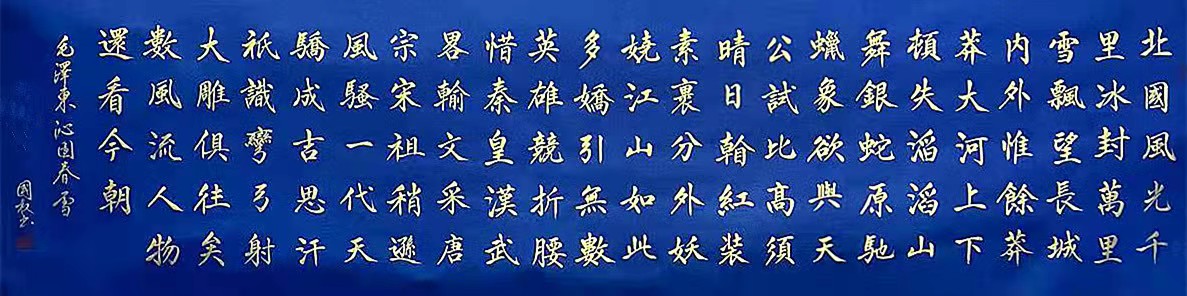 北國風光千
里冰封萬里
雪飄望長城
内外惟餘莽
莽大河上下
頓失滔滔山
舞銀蛇原馳
蠟象欲與天
公試比高須
晴日翰紅装
素裹分外妖
娆江山如此
多嬌引無數
英雄競折腰
惜秦皇漢武
畧輸文采唐
宗宋祖稍遜
風騷一代天
驕成吉思汗
祇識彎弓射
大雕俱往矣
數風流人物
還看今朝
毛澤東沁園春雪
國